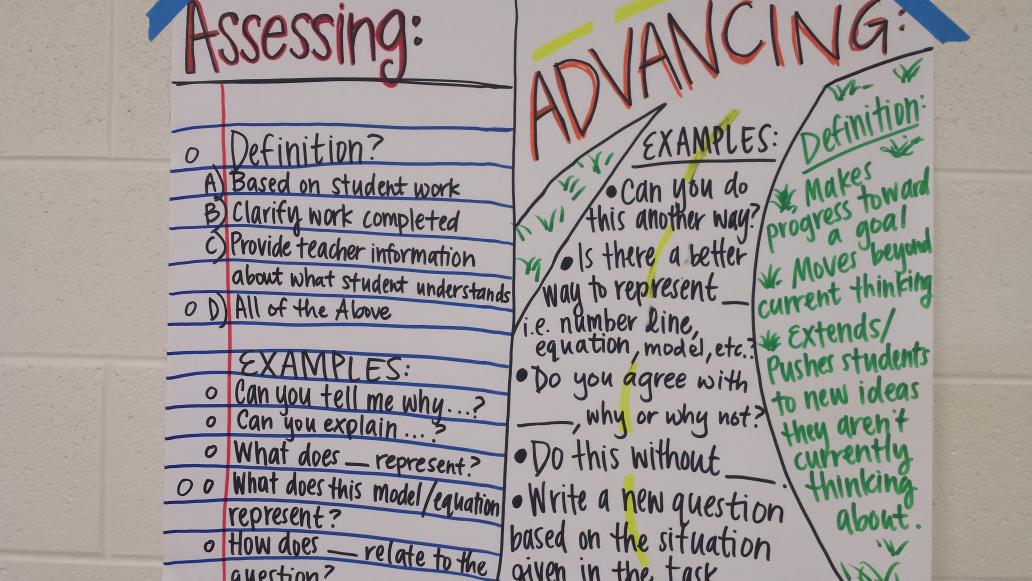 Assessing:
Definition?
A) Based on student work
B) Clarify work completed
C) Provide teacher information
about what student understands
D) All of the Above
EXAMPLES:
Can you tell me why...?
Can you explain ...?
What does __ represent?
What does this model/equation
represent?
How does __ relate to the
question?
ADVANCING:
EXAMPLES:
• Can you do
this another way?
• Is there a better
way to represent __
i.e. number line,
equation, model, etc.?
• Do you agree with
____, why or why not?
• Do this without ____.
• Write a new question
based on the situation
given in the task
Definition:
Makes
progress toward
a goal
Moves beyond
current thinking
Extends/
Pushes students
to new ideas
they aren't
currently
thinking
about.